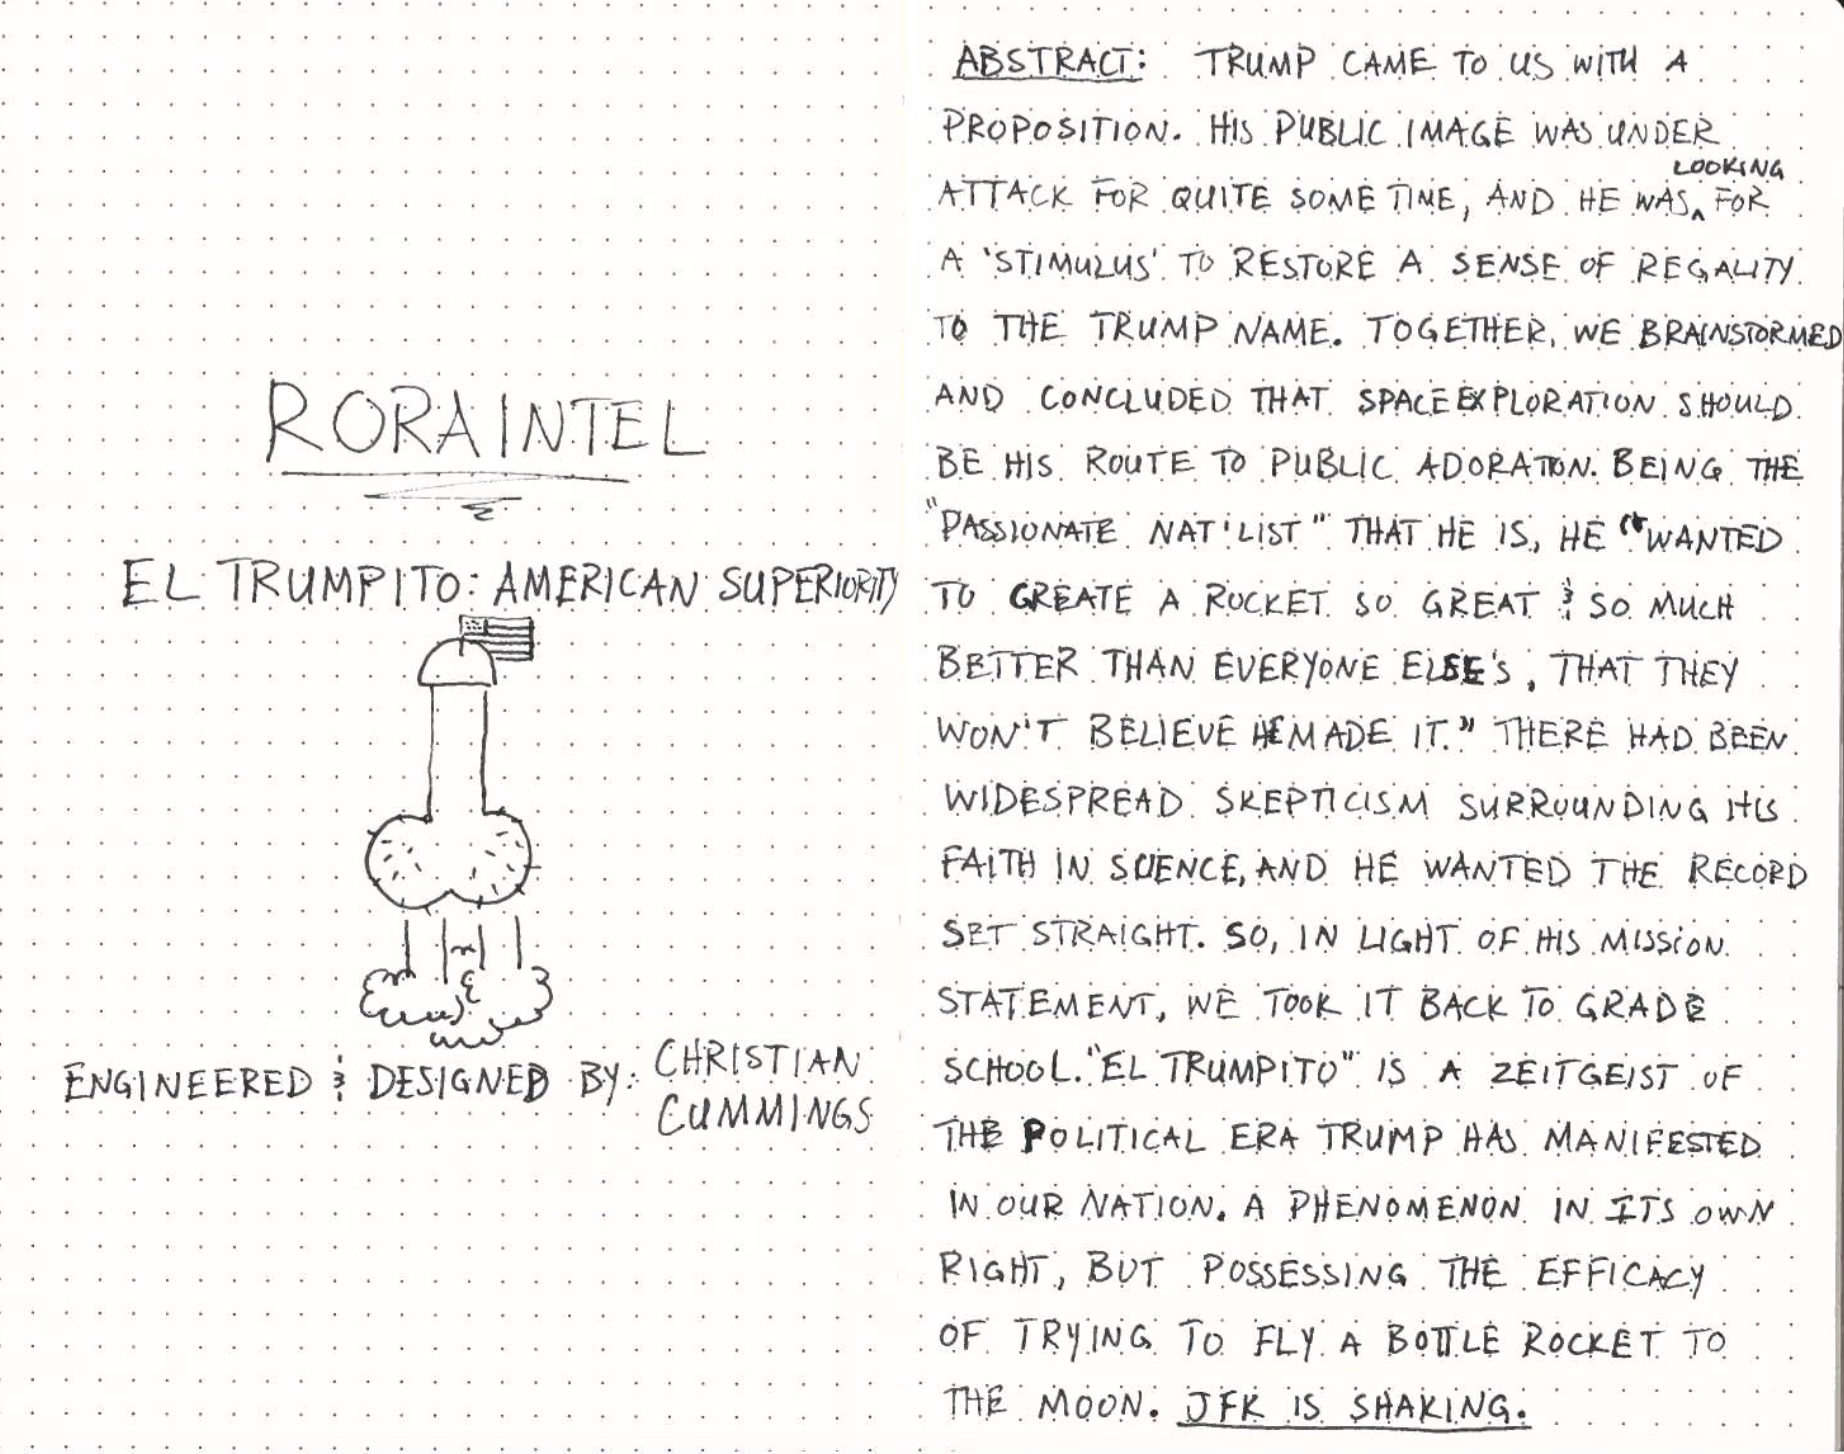 RORAINTEL
EL TRUMPITO: AMERICAN SUPERIORITY
ENGINEERED & DESIGNED BY: CHRISTIAN
CUMMINGS
ABSTRACT: TRUMP CAME TO US WITH A
PROPOSITION. HIS PUBLIC IMAGE WAS UNDER
ATTACK FOR QUITE SOME TIME, AND HE WAS LOOKING FOR
A 'STIMULUS' TO RESTORE A SENSE OF REGALITY
TO THE TRUMP NAME. TOGETHER, WE BRAINSTORMED
AND CONCLUDED THAT SPACE EXPLORATION SHOULD
BE HIS ROUTE TO PUBLIC ADORATION. BEING THE
"PASSIONATE NAT'LIST" THAT HE IS, HE "WANTED
TO CREATE A ROCKET SO GREAT & SO MUCH
BETTER THAN EVERYONE ELSE'S, THAT THEY
WON'T BELIEVE HE MADE IT." THERE HAD BEEN
WIDESPREAD SKEPTICISM SURROUNDING HIS
FAITH IN SCIENCE, AND HE WANTED THE RECORD
SET STRAIGHT. SO, IN LIGHT OF HIS MISSION
STATEMENT, WE TOOK IT BACK TO GRADE
SCHOOL. "EL TRUMPITO" IS A ZEITGEIST OF
THE POLITICAL ERA TRUMP HAS MANIFESTED
IN OUR NATION. A PHENOMENON IN ITS OWN
RIGHT, BUT POSSESSING THE EFFICACY
OF TRYING TO FLY A BOTTLE ROCKET TO
THE MOON. JFK IS SHAKING.